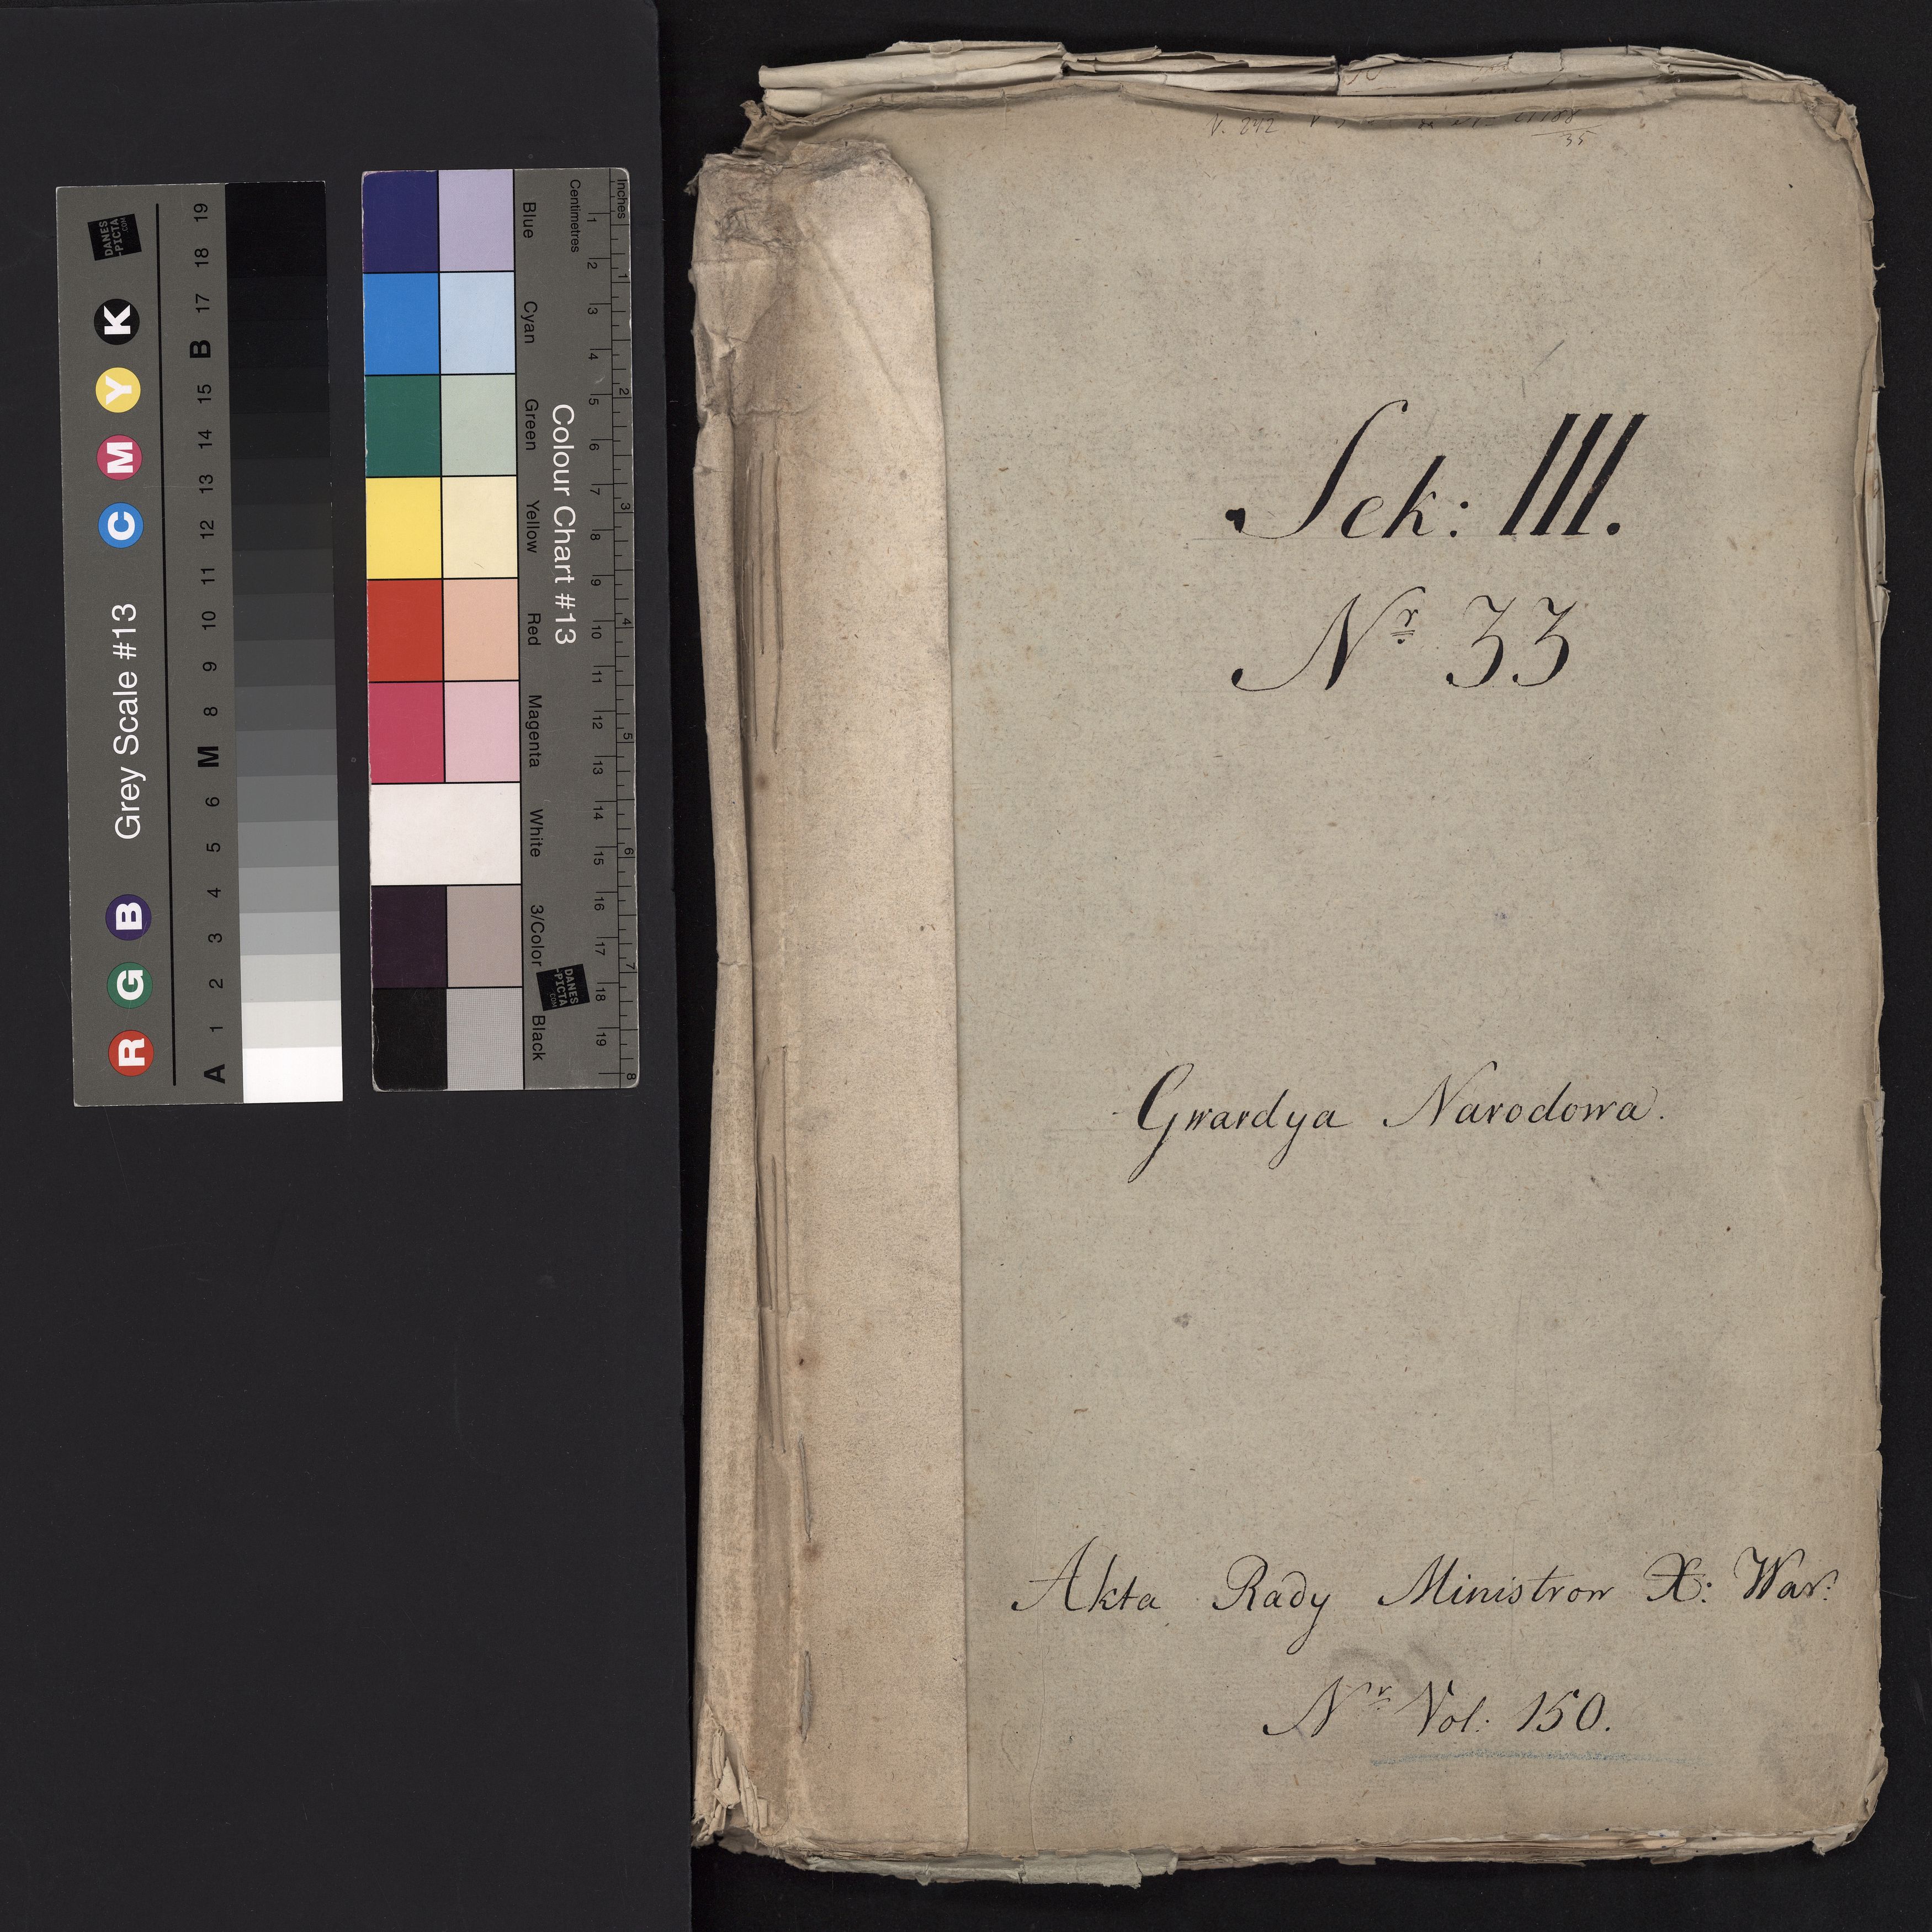 Sek: III.
Nr 33
Gwardya Narodowa.
Akta Rady Ministrow X: War:
Nr Vol: 150.
Grey Scale #13
R G B C M Y K
A 1 2 3 4 5 6 M 8 9 10 11 12 13 14 15 B 17 18 19
DANES
-PICTA
.COM
Colour Chart #13
Blue Cyan Green Yellow Red Magenta White 3/Color Black
Inches
1 2 3 4 5 6 7 8
Centimetres
1 2 3 4 5 6 7 8 9 10 11 12 13 14 15 16 17 18 19
DANES
-PICTA
.COM